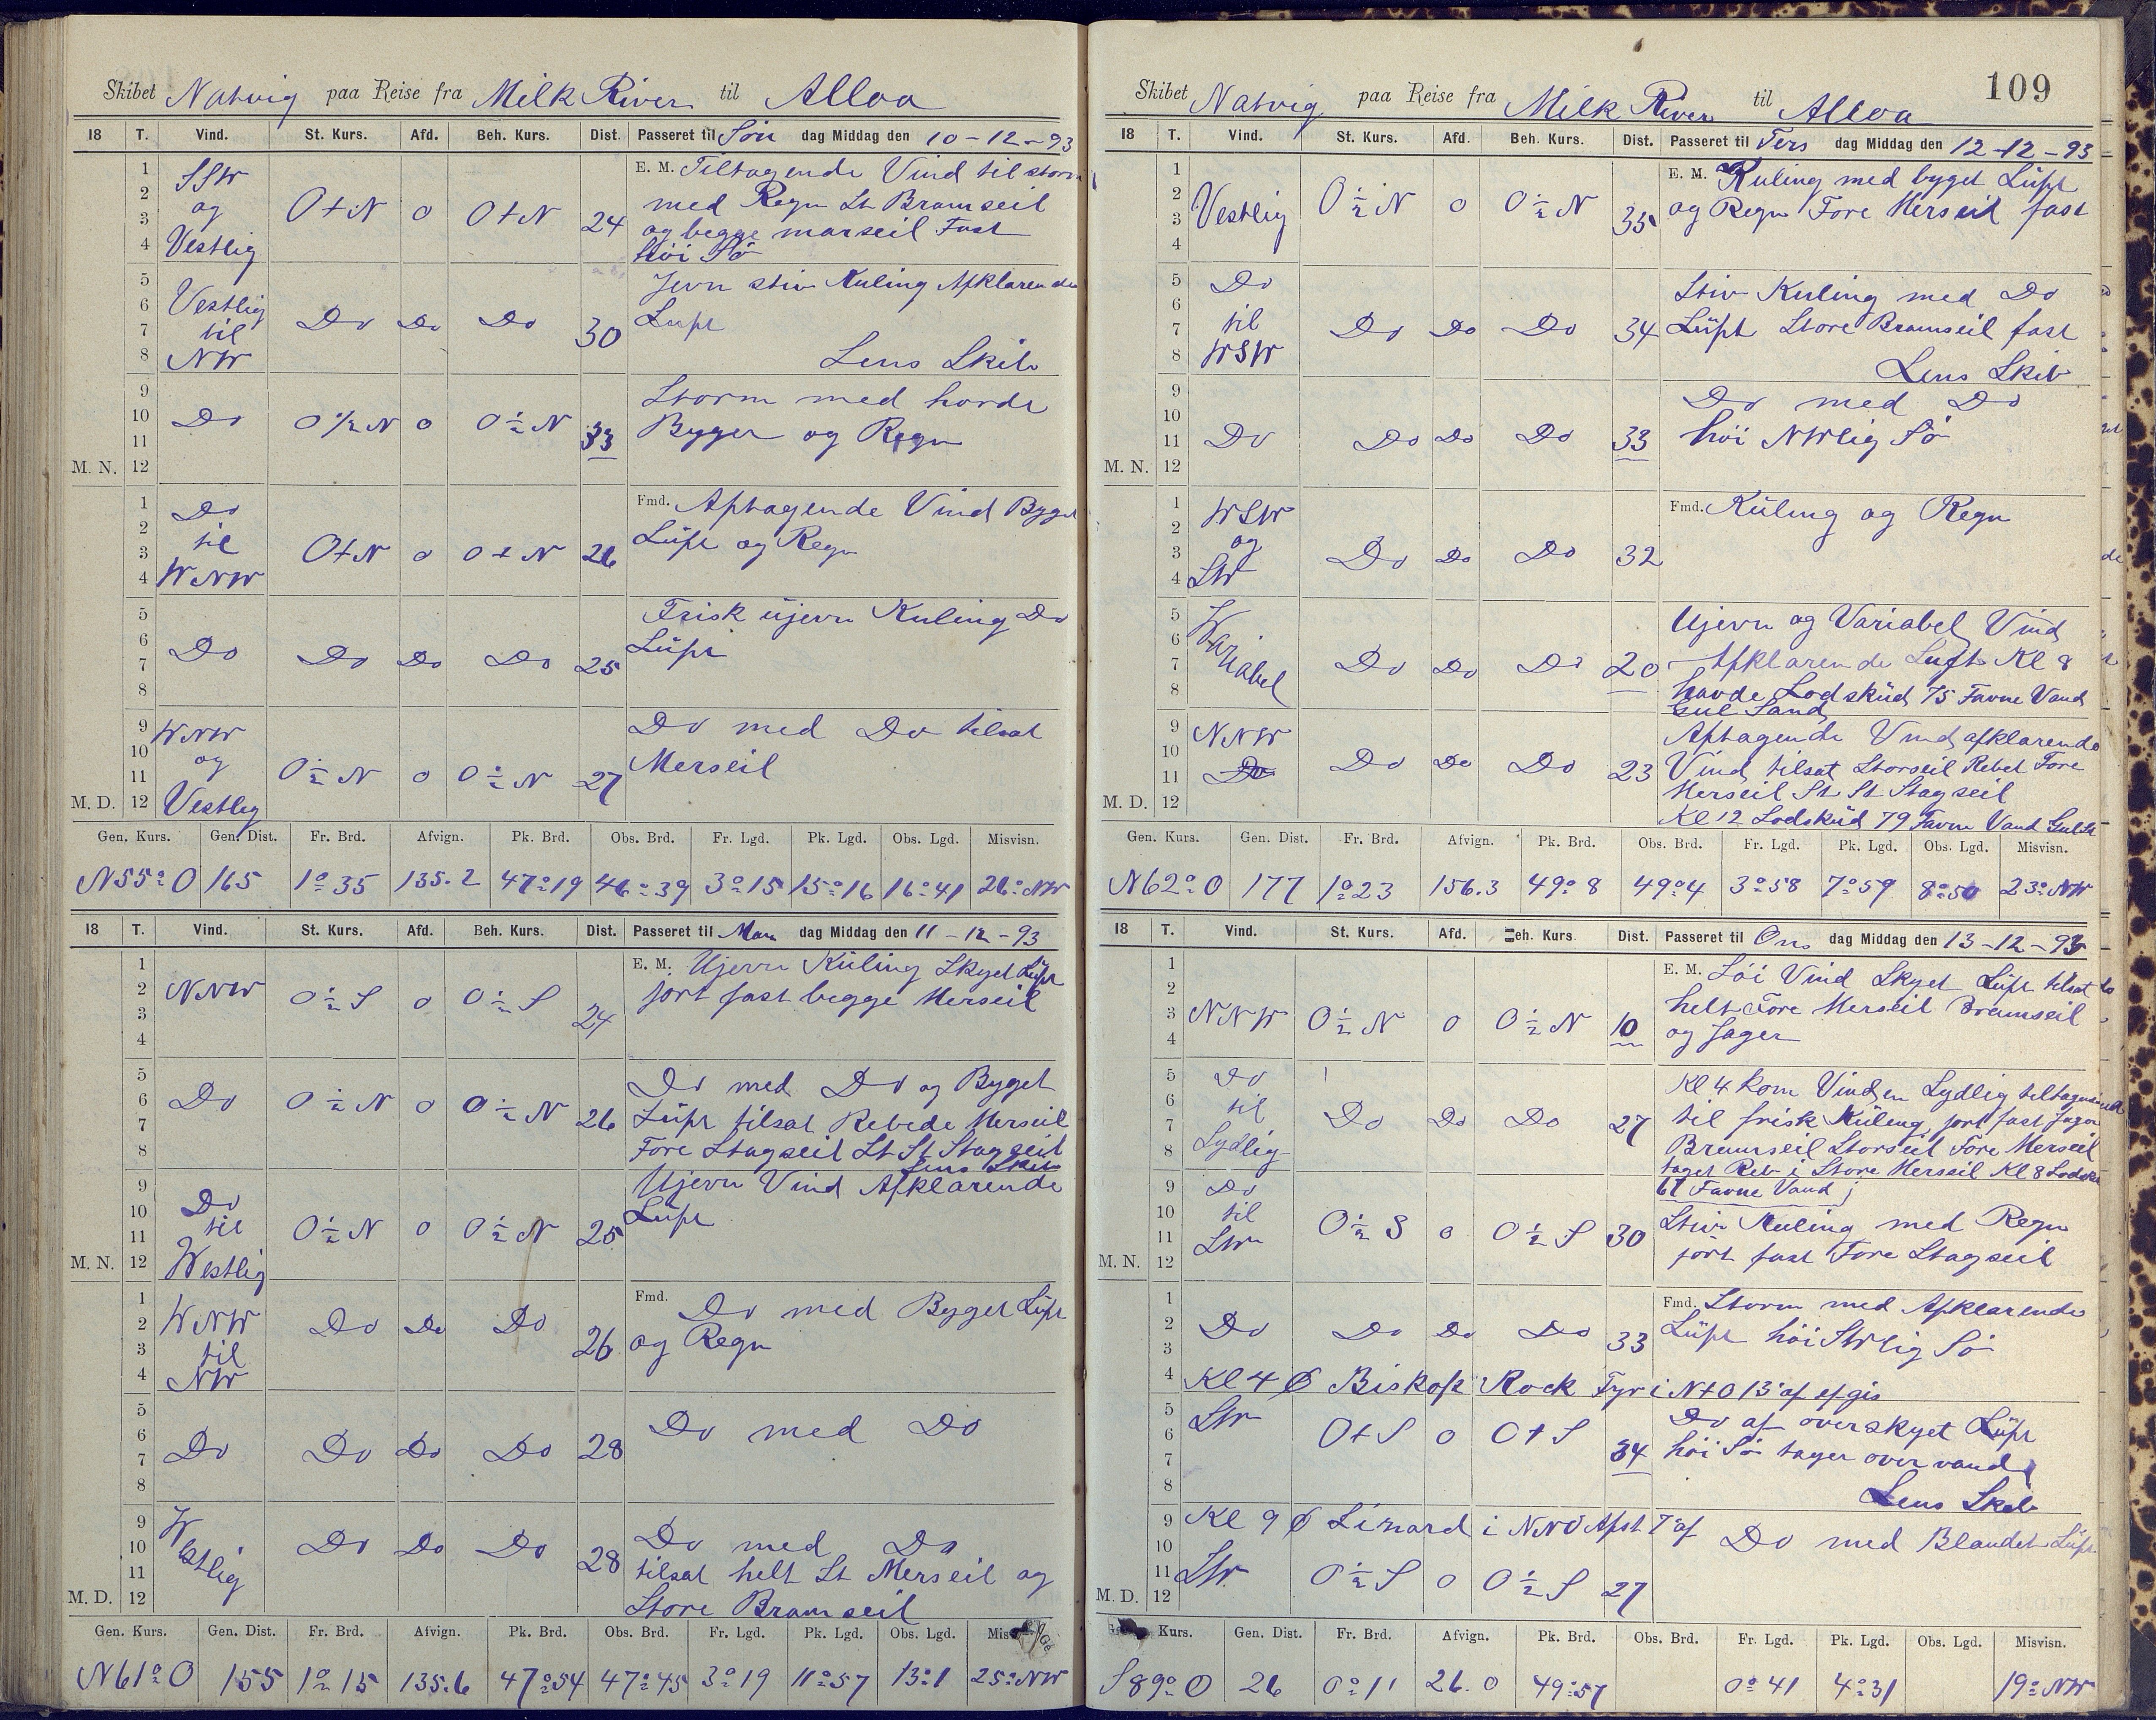 Skibet Natvig paa Reise fra Milk River til Alloa
18 T. Vind. St. Kurs. Afd. Beh. Kurs. Dist. Passeret til Søn dag Middag den 10-12-93
1 2 3 4 SSW og Vestlig O t N 0 O t N 24 E. M. Tiltagende Vind til storm
med Regn St Bramseil
og begge marseil Fast
høi Sø
5 6 7 8 Vestlig til NW Do Do Do 30 Jevn stiv Kuling Afklarende
Luft
Lens Skib
9 10 11 12 M. N. Do O 1/2 N 0 O 1/2 N 33 Storm med harde
Byger og Regn
1 2 3 4 Do til WNW O t N 0 O t N 26 Fmd. Aftagende Vind Byget
Luft og Regn
5 6 7 8 Do Do Do Do 25 Frisk ujevn Kuling Do
Luft
9 10 11 12 M. D. WNW og Vestlig O 1/2 N 0 O 1/2 N 27 Do med Do tilsat
Merseil
Gen. Kurs. Gen. Dist. Fr. Brd. Afvign. Pk. Brd. Obs. Brd. Fr. Lgd. Pk. Lgd. Obs. Lgd. Misvisn.
N55°O 165 1°35 135.2 47°19 46°39 3°15 15°16 16°41 26°NW
18 T. Vind. St. Kurs. Afd. Beh. Kurs. Dist. Passeret til Man dag Middag den 11-12-93
1 2 3 4 NNW O 1/2 S 0 O 1/2 S 24 E. M. Ujevn Kuling Skyet Luft
jort fast begge Merseil
5 6 7 8 Do O 1/2 N 0 O 1/2 N 26 Do med Do og Byget
Luft tilsat Rebede Merseil
Fore Stagseil St St Stagseil
Lens Skib
9 10 11 12 M. N. Do til Westlig O 1/2 N 0 O 1/2 N 25 Ujevn Vind Afklarende
Luft
1 2 3 4 WNW til NW Do Do Do 26 Fmd. Do med Byget Luft
og Regn
5 6 7 8 Do Do Do Do 28 Do med Do
9 10 11 12 M. D. Westlig Do Do Do 28 Do med Do
tilsat helt St Merseil og
Store Bramseil
Gen. Kurs. Gen. Dist. Fr. Brd. Afvign. Pk. Brd. Obs. Brd. Fr. Lgd. Pk. Lgd. Obs. Lgd. Mis
N61°O 155 1°15 135.6 47°54 47°45 3°19 11°57 13°1 25°NW
109
Skibet Natvig paa Reise fra Milk River til Alloa
18 T. Vind. St. Kurs. Afd. Beh. Kurs. Dist. Passeret til Ters dag Middag den 12-12-93
1 2 3 4 Vestlig O 1/2 N 0 O 1/2 N 35 E. M. Kuling med byget Luft
og Regn Fore Merseil fast
5 6 7 8 Do til WSW Do Do Do 34 Stiv Kuling med Do
Luft Store Bramseil fast
Lens Skib
9 10 11 12 M. N. Do Do Do Do 33 Do med Do
høi NWlig Sø
1 2 3 4 WSW og SW Do Do Do 32 Fmd. Kuling og Regn
5 6 7 8 Variabel Do Do Do 20 Ujevn og Variabel Vind
Afklarende Luft Kl 8
havde Lodskud 75 Favne Vand
Gul Sand
9 10 11 12 M. D. NNW Do Do Do Do 23 Aftagende Vind afklarende
Vind tilsat Storseil Rebet Fore
Merseil St St Stagseil
Kl 12 Lodskud 79 Favne Vand Gul
Gen. Kurs. Gen. Dist. Fr. Brd. Afvign. Pk. Brd. Obs. Brd. Fr. Lgd. Pk. Lgd. Obs. Lgd. Misvisn.
N62°O 177 1°23 156.3 49°8 49°4 3°58 7°59 8°50 23°NW
18 T. Vind. St. Kurs. Afd. Beh. Kurs Dist. Passeret til Ons dag Middag den 13-12-93
1 2 3 4 NNW O 1/2 N 0 O 1/2 N 10 E. M. Løi Vind Skyet Luft tilsat
helt Fore Merseil Bramseil
og Jager
5 6 7 8 Do til Sydlig Do Do Do 27 Kl 4 kom Vinden Sydlig tiltagende
til frisk Kuling, jort fast Jager
Bramseil Storseil Fore Merseil
taget Reb i Store Merseil Kl 8 Lodsku
67 Favne Vand
9 10 11 12 M. N. Do til SW O 1/2 S 0 O 1/2 S 30 Stiv Kuling med Regn
jort fast Fore Stagseil
1 2 3 Do Do Do Do 33 Fmd. Storm med Afklarende
Luft høi SWlig Sø
4 Kl 4 Ø Biskop Rock Fyr i NtO 13' af
5 6 7 8 SW O t S 0 O t S 34 Do af overskyet Luft
høi Sø tager over vand
Lens Skib
9 Kl 9 Ø Lizard i NNO Afst 7' af Do med Blandet Luft
10 11 12 M. D. SW O 1/2 S 0 O 1/2 S 27
Kurs. Gen. Dist. Fr. Brd. Afvign. Pk. Brd. Obs. Brd. Fr. Lgd. Pk. Lgd. Obs. Lgd. Misvisn.
S89°O 26 0°11 26.0 49°57 0°41 4°31 19°NW